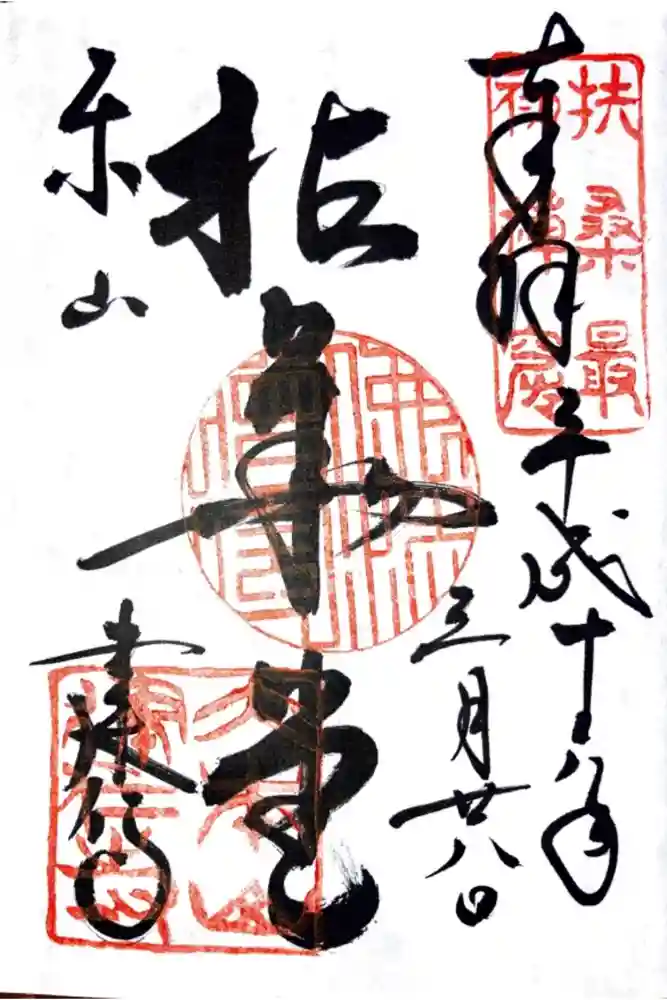 奉拝 平成十八年
三月廿八日
拈華堂
東山
建仁寺
扶桑最
初禅窟